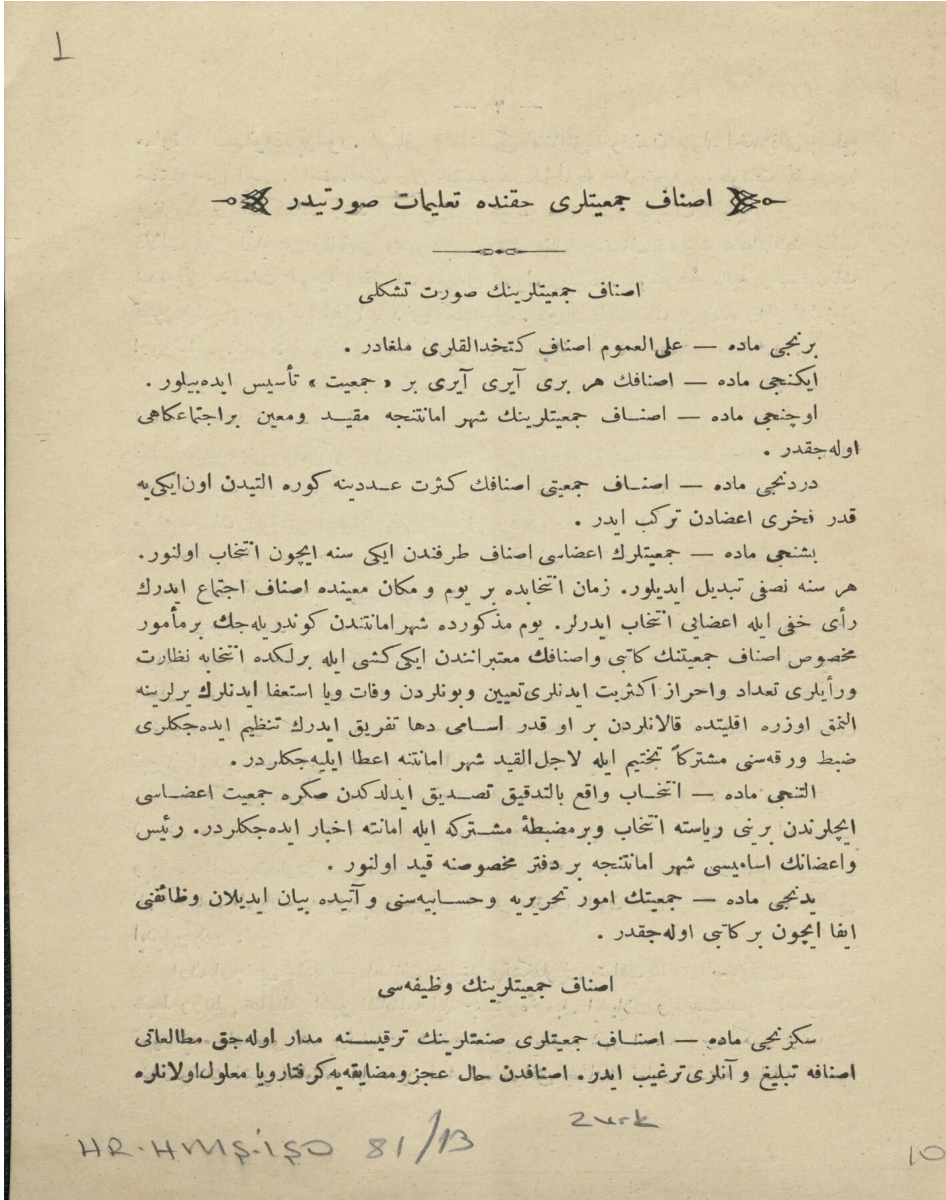 1
اصناف جمعیتلری حقنده تعلیمات صورتیدر
اصناف جمعیتلرینك صورت تشكلی
برنجی ماده — علی‌العموم اصناف كتخدالقلری ملغادر .
ایكنجی ماده — اصنافك هر بری آیری آیری بر « جمعیت » تأسیس ایده‌بیلور .
اوچنجی ماده — اصنـاف جمعیتلرینك شهر امانتنجه مقیـد ومعین براجتماعكاهی
اوله‌جقدر .
دردنجی ماده — اصنـاف جمعیتی اصنافك كثرت عـددینه كوره التیدن اون‌ایكی‌یه
قدر فخری اعضادن تركب ایدر .
بشنجی ماده — جمعیتلرك اعضاسی اصناف طرفندن ایكی سنه ایچون انتخاب اولنور.
هر سنه نصفی تبدیل ایدیلور. زمان انتخابده بر یوم و مكان معینده اصناف اجتماع ایدرك
رأی خفی ایله اعضایی انتخاب ایدرلر. یوم مذكورده شهرامانتندن كوندریله‌جك برمأمور
مخصوص اصناف جمعیتنك كاتبی واصنافك معتبرانندن ایكی‌كشی ایله برلكده انتخابه نظارت
ورأیلری تعداد واحراز اكثریت ایدنلری‌تعیین وبونلردن وفات ویا استعفا ایدنلرك یرلرینه
اوزره اقلیتده قالانلردن بر او قدر اسـامی دها تفریق ایدرك تنظیم ایده‌جكلری
ضبط ورقه‌سنی مشتركاً تختیم ایله لاجل‌القید شهر امانتنه اعطا ایلیه‌جكلردر.
التنجی ماده — انتخـاب واقع بالتدقیق تصـدیق ایدلدكدن صكره جمعیت اعضـاسی
ایچلرندن برینی ریاسته انتخاب وبرمضبطۀ مشـتركه ایله امانته اخبار ایده‌جكلردر. رئیس
واعضانك اسامیسی شهر امانتنجه بر دفتر مخصوصنه قید اولنور .
یدنجی ماده — جمعیتك امور تحریریه وحسـابیه‌سنی و آتیده بیان ایدیلان وظائفنی
ایفا ایچون بركاتبی اوله‌جقدر .
اصناف جمعیتلرینك وظیفه‌سی
سكزنجی ماده — اصنـاف جمعیتلری صنعتلرینك ترقیسـنه مدار اوله‌جق مطالعاتی
اصنافه تبلیغ و آنلری‌ترغیب ایدر. اصنافدن حال عجزومضایقه‌یه‌كرفتارویا معلول‌اولانلره
HR.HMŞ.İŞO 81/13
10